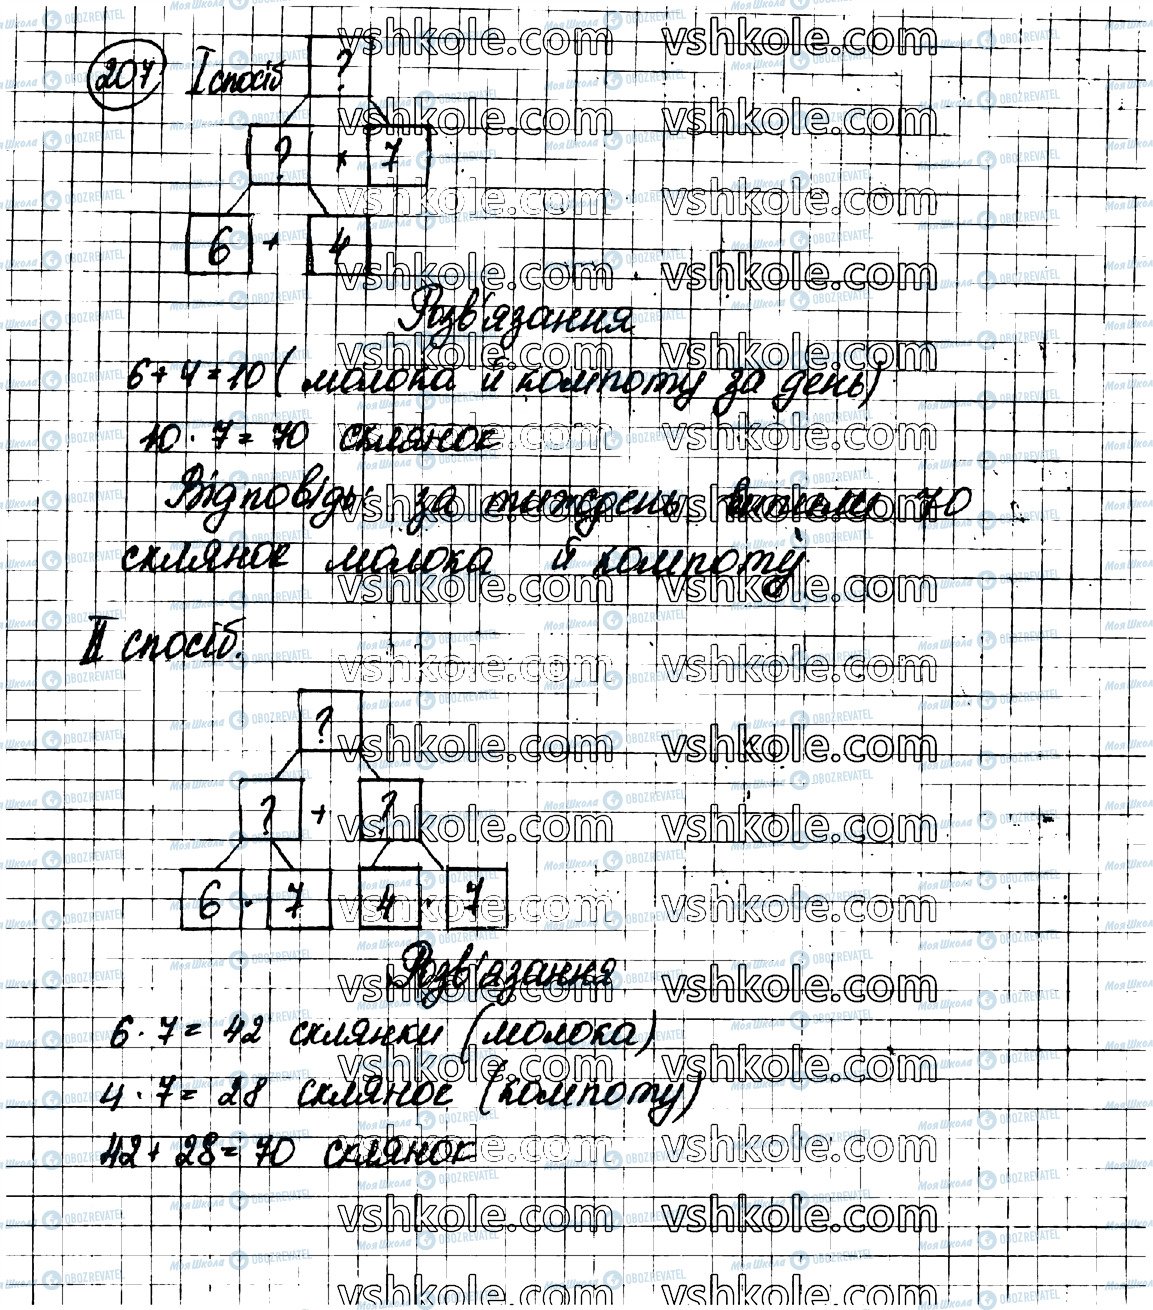 207 I спосіб
?
? × 7
6 + 4
Розв'язання
6 + 4 = 10 ( молока й компоту за день)
10 · 7 = 70 склянок
Відповідь: за тиждень випили 70
склянок молока й компоту
II спосіб.
?
? + ?
6 · 7 4 · 7
Розв'язання
6 · 7 = 42 склянки (молока)
4 · 7 = 28 склянок (компоту)
42 + 28 = 70 склянок
vshkole.com
Моя Школа OBOZREVATEL